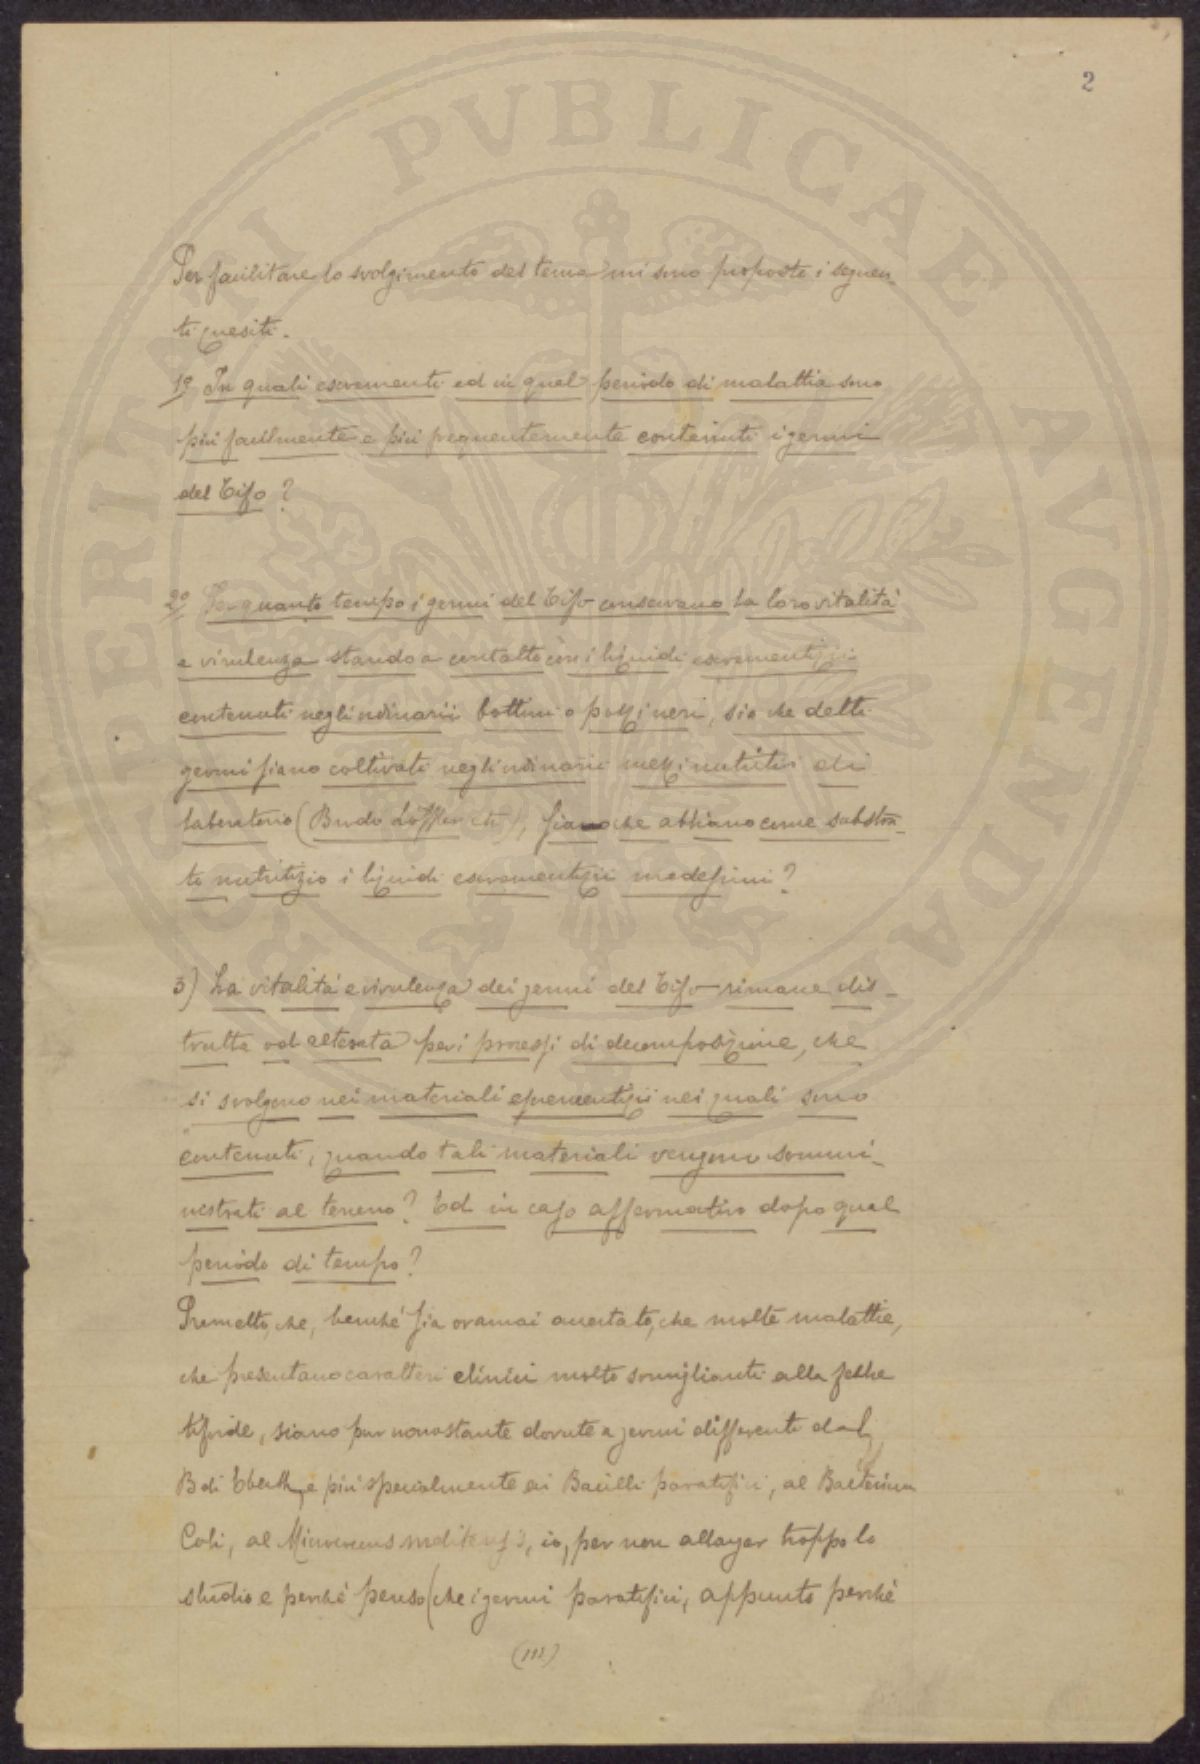 2
Per facilitare lo svolgimento del tema mi sono proposto i seguen-
ti quesiti.
1º In quali escrementi ed in qual periodo di malattia sono
più facilmente e più frequentemente contenuti i germi
del Tifo?
2º Per quanto tempo i germi del Tifo conservano la loro vitalità
e virulenza stando a contatto con i liquidi escrementizii
contenuti negli ordinarii bottini o pozzi neri, sia che detti
germi siano coltivati negli ordinarii mezzi nutritivi di
laboratorio (Brodo Löffler etc), siano che abbiano come substra-
to nutritizio i liquidi escrementizii medesimi?
3) La vitalità e virulenza dei germi del Tifo rimane dis-
trutta od alterata per i processi di decomposizione, che
si svolgono nei materiali escrementizii nei quali sono
contenuti, quando tali materiali vengono sommi-
nistrati al terreno? Ed in caso affermativo dopo qual
periodo di tempo?
Premetto, che, benché sia oramai accertato, che molte malattie,
che presentano caratteri clinici molto somiglianti alla febbre
tifoide, siano pur nonostante dovute a germi differenti dal
B di Eberth, e più specialmente ai Bacilli paratifici, al Bacterium
Coli, al Micrococcus melitensis, io, per non allargar troppo lo
studio e perché penso (che i germi paratifici, appunto perché
(111)
PROSPERITATI PVBLICAE AVGENDAE